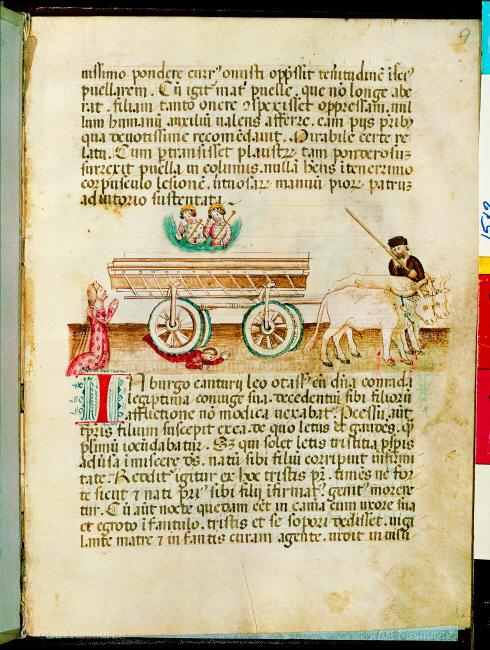 9
nissimo pondere curr' onusti opp̄ssit tenitudinē isti'
puellarem. Cū igit' mat' puelle, que nō longe abe
rat. filiam tanto onere ɔspexisset oppressam. nul
lum humanū auxiliū ualens afferre. eam pijs p̄ribȝ
qua deuotissime recomēdauit. Mirabile certe re
latu. Cum p̄transisset plaustrȝ tam ponderosuȝ
surrexit puella in columis. nullā hēns i tenerrimo
corpusculo lesionē. uirtuosaȝ manuū pioȝ patruȝ
adiutorio sustentata
IN burgo cantarij leo otass' cū dn̄a conrada
legiptima coniuge sua. decedentiū sibi filiorū
afflictione nō modica uexabat'. Pcessū aūt
tp̄ris filium suscepit ex ea. de quo letus et gauiōs. q̄
plimū iocūdabatur. Sȝ qm̄ solet letis tristitia p̄spis
aduersa i miscere
natū sibi filiū corripuit infirmi
tate. Reddit' igitur ex hoc tristis pr̄. timēs ne for
te sicut et nati
sibi filij īfirmat'. gemit' merere
tur. Cū aūt nocte quadam eēt in cama cum uxore sua
et egroto īfantulo. tristis et se sopori dedisset. uigi
lante matre et infantis curam agente. uidit in uisi
1512